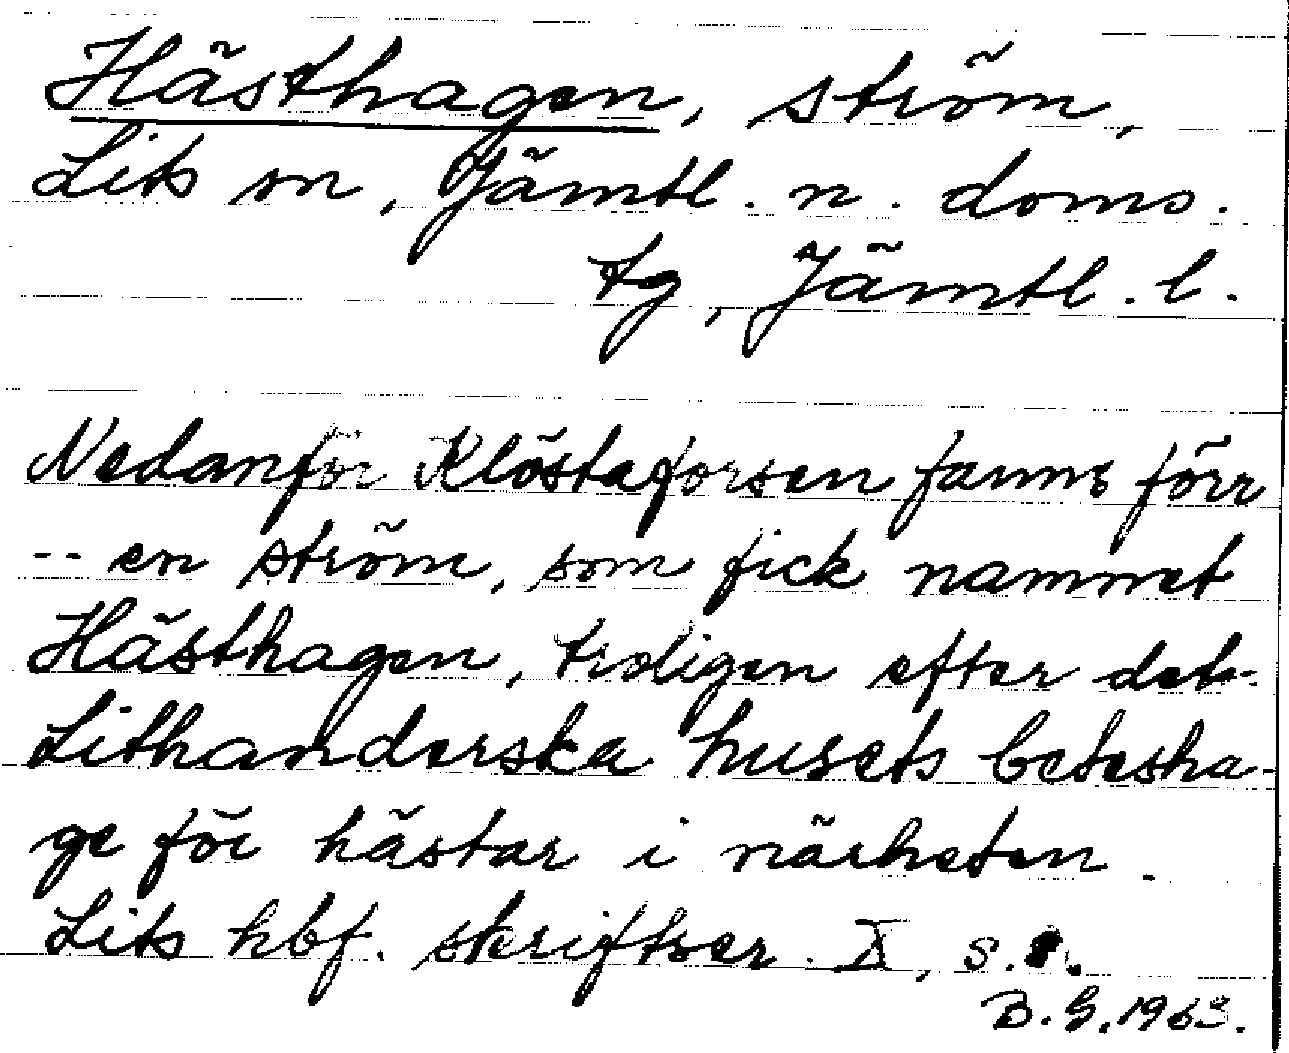 Hästhagen, ström,
Lits sn, Jämtl. n. doms.
tg, Jämtl. l.
Nedanför Klöstaforsen fanns förr
-- en ström, som fick namnet
Hästhagen, troligen efter det
Lithanderska husets betesha-
ge för hästar i närheten.
Lits hbf. skriftser. X, s.
B. G. 1963.